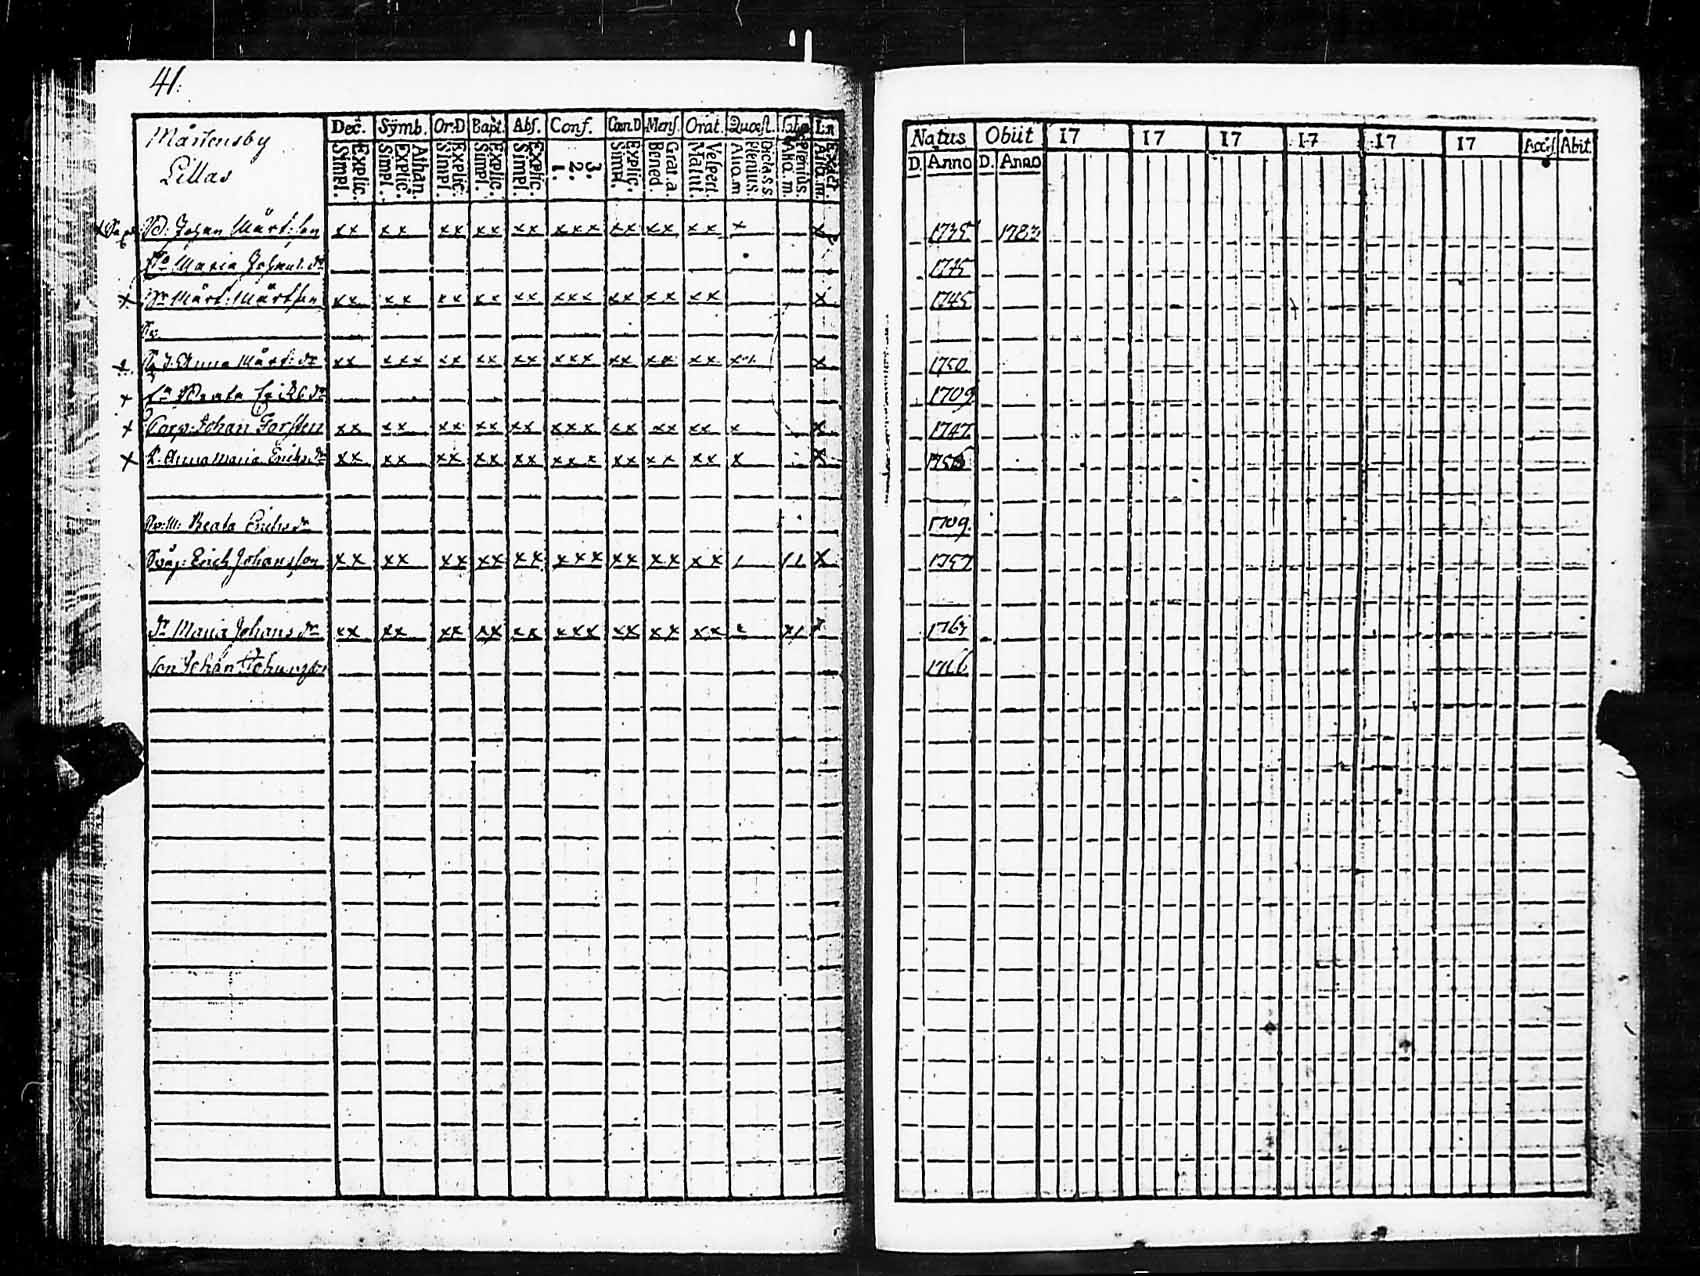 41.
Mårtensby
Lillas
Dec. Symb. Or:D Bapt. Abs. Conf. Cœn.D Mens. Orat. Quæst.
Explic. Simpl. Athan. Explic. Simpl. Explic. Simpl. Explic. Simpl. Explic. Simpl. 3. 2. 1. Explic. Simpl. Grat. a. Bened. Vespert. Matut. Dict. a S S Plenius. Aliq. m. Plenius. Aliq. m.
Natus Obiit 17 17 17 17 17 17 Acc. Abit
D. Anno D. Anno
B: Johan Mårt:son xx xx xx xx xx xxx xx xx xx x x 1735 1783
Maria Johans dr 1775
Mårt: Mårtsson xx xx xx xx xx xxx xx xx xx x 1745
Anna Mårt: dr xx xxx xx xx xx xxx xx xx xx x 1750
Beata Eriks dr 1709
Corp: Johan Forsten xx xx xx xx xx xxx xx xx xx x x 1747
h. Anna Maria Eriks dr xx xx xx xx xx xxx xx xx xx x x
Sv:M: Beata Erichs dr 1709.
Svåg: Erich Johansson xx xx xx xx xx xxx xx xx xx x 1757
dr Maria Johans dr xx xx xx xx xx xxx xx xx xx
son Johan Johansson